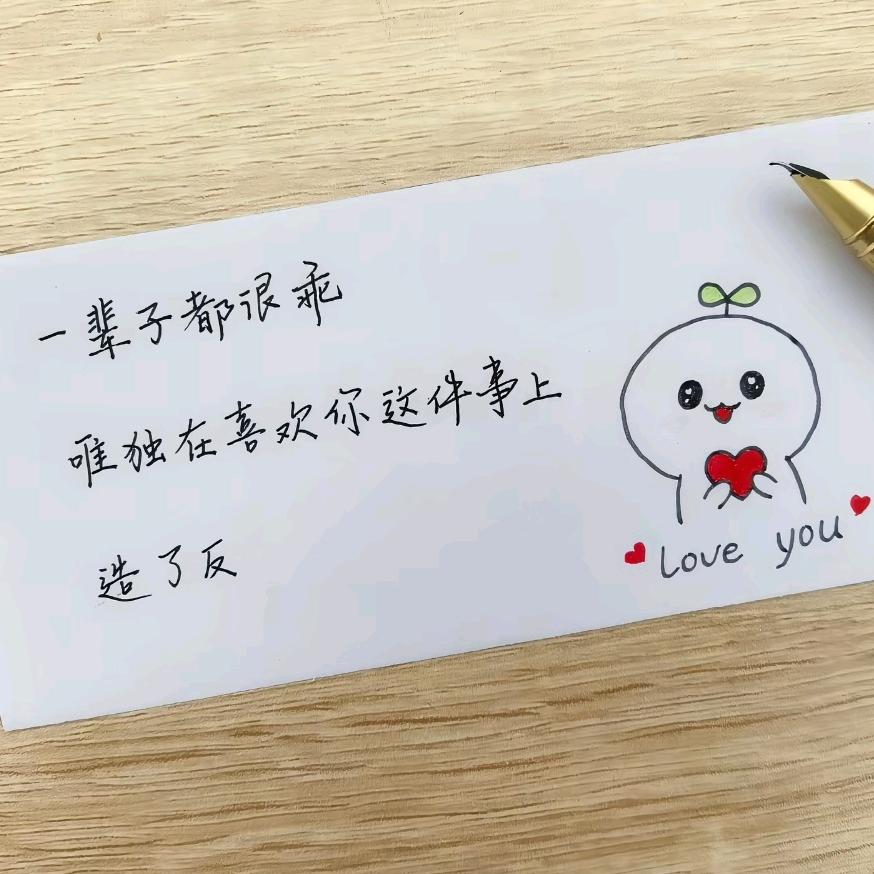 一辈子都很乖
唯独在喜欢你这件事上
造了反
Love you